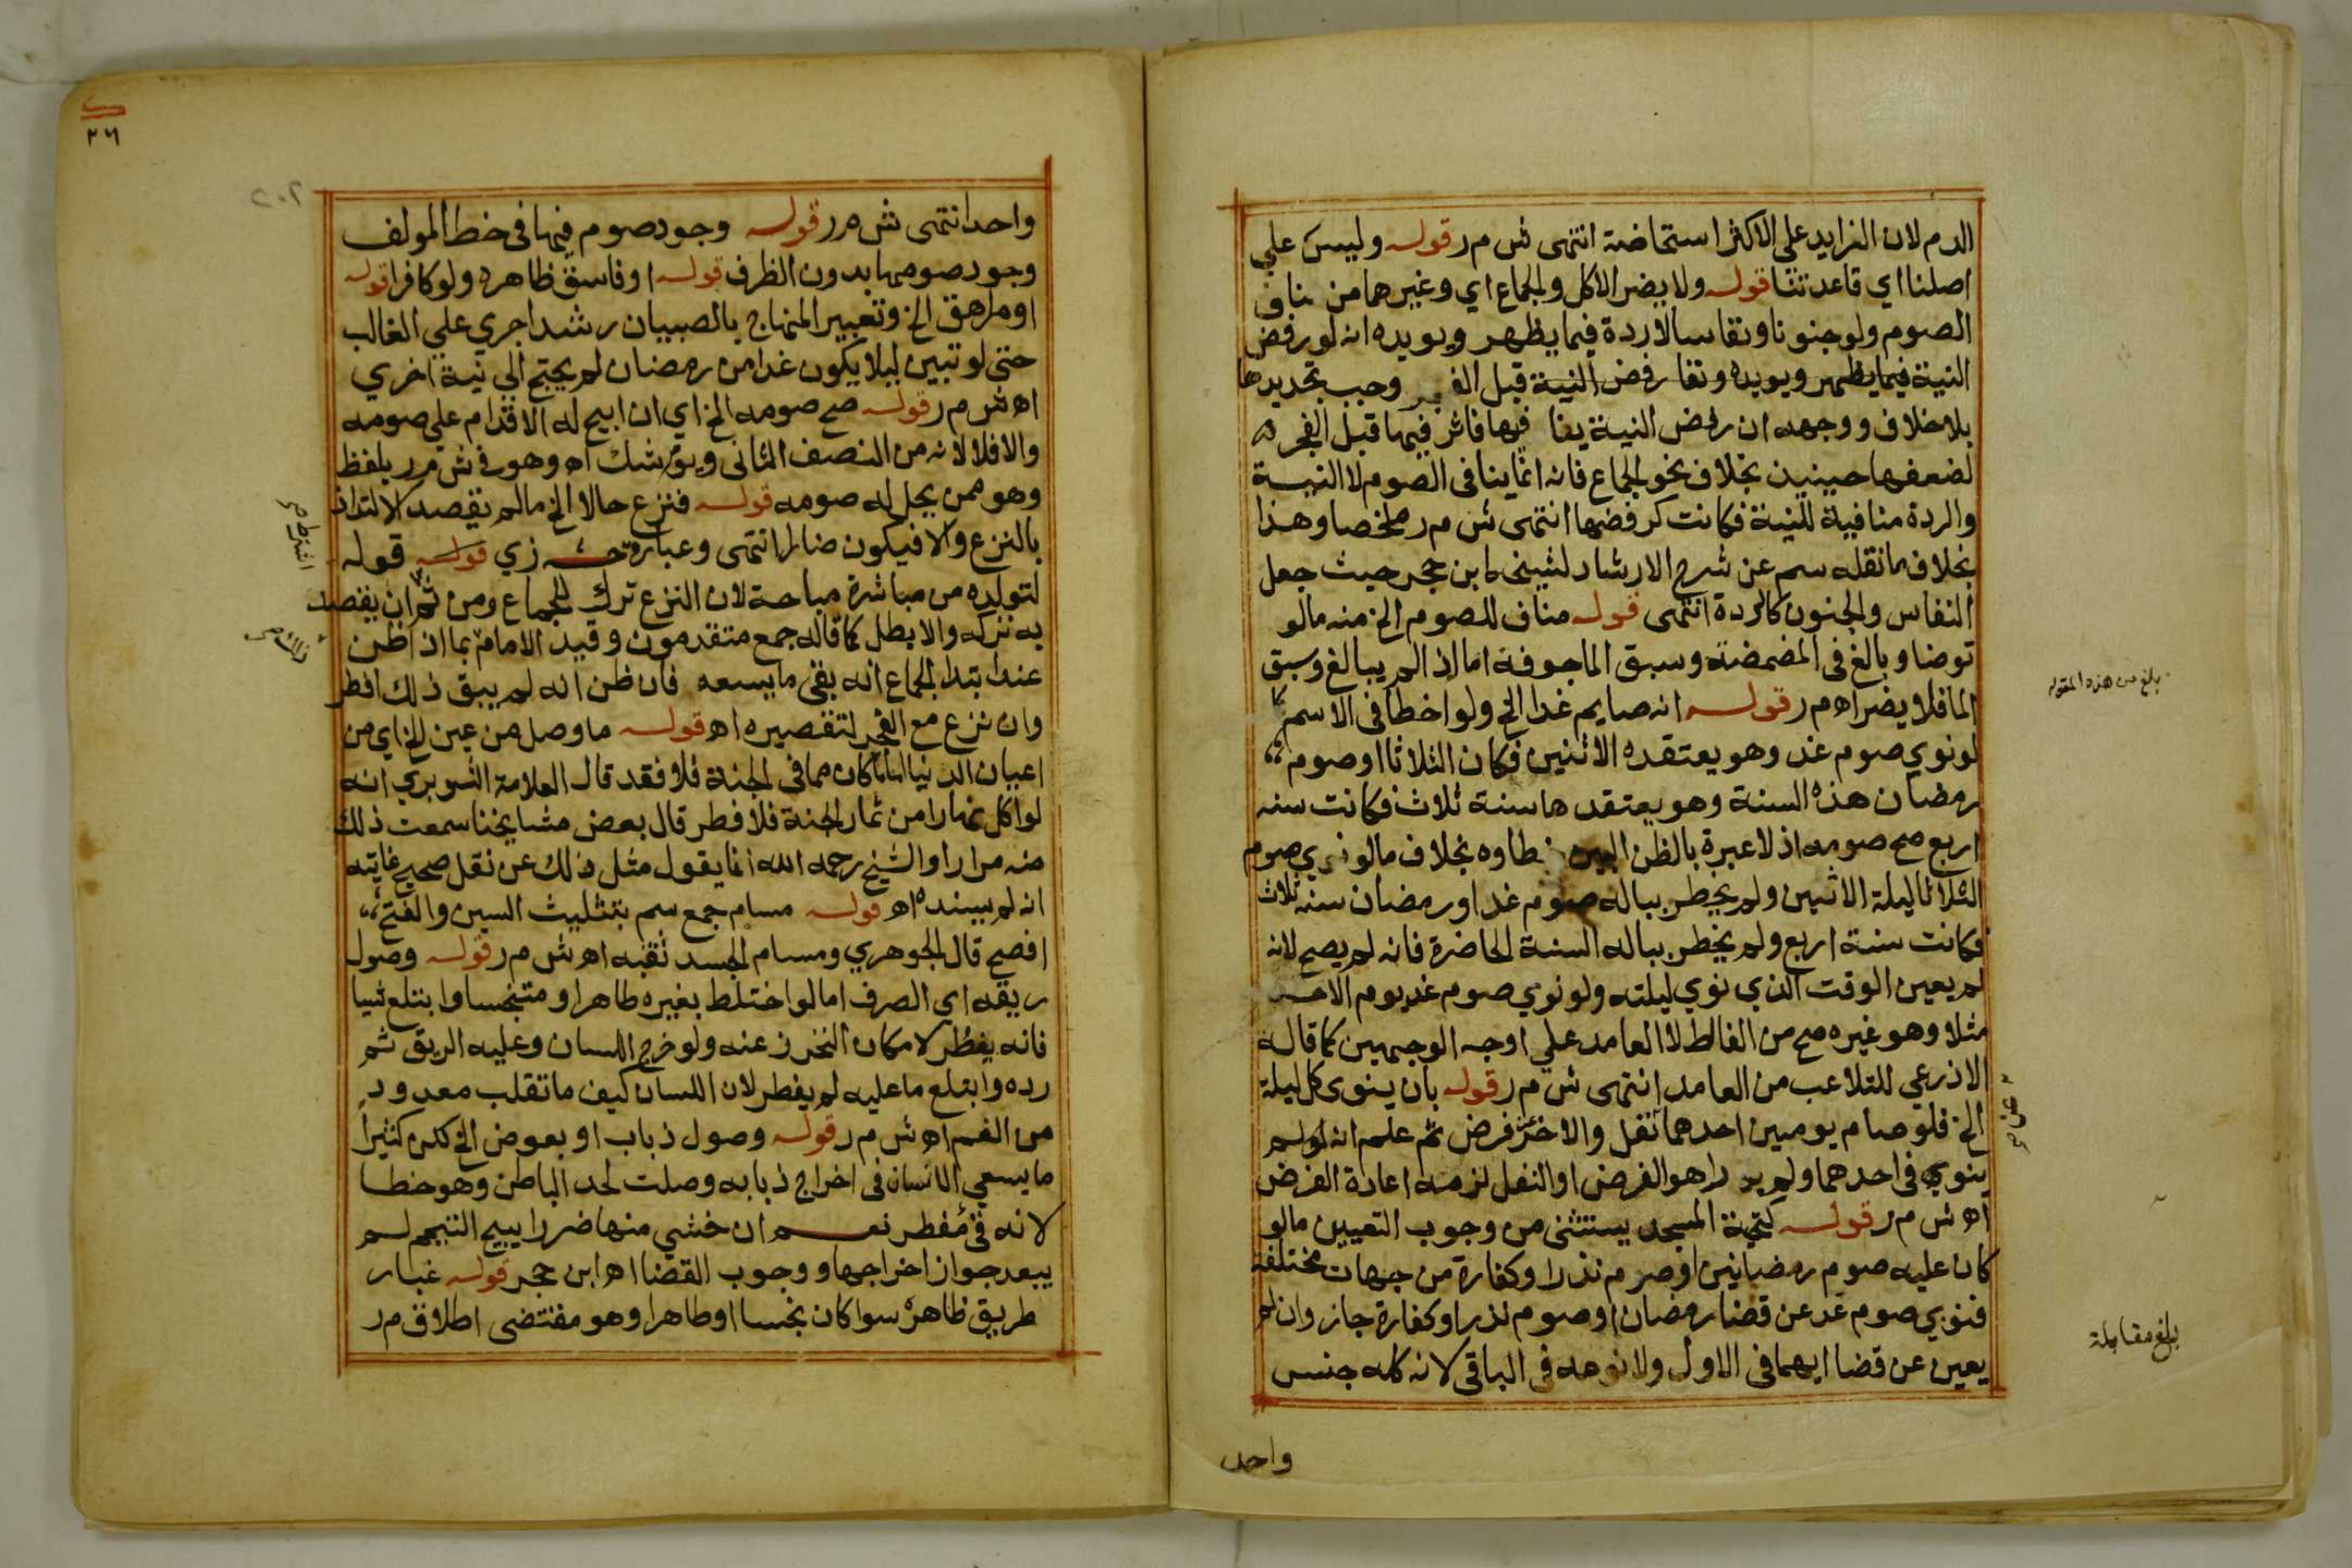 الدم لان الزايد علي الاكثر استحاضة انتهى ش م ر قوله وليس علي
اصلنا اي قاعدتنا قوله ولا يضر الاكل والجماع اي وغيرهما من مناف
الصوم ولو جنونا ونفاسا لا ردة فيما يظهر ويويده انه لو رفض
النية فيما يظهر ويويده رفض النية قبل وجب تجديدها
بلا خلاف ووجهه ان رفض النية فيها فاثر فيها قبل الفجر
لضعفها حينيذ بخلاف نحو الجماع فانه انما ينافى الصوم لا النية
والردة منافية للنية فكانت كرفضها انتهى ش م ر ملخصا وهذا
بخلاف ما نقله سم عن شرح الارشاد لشيخه ابن حجر حيث جعل
النفاس والجنون كالردة انتهى قوله مناف للصوم الخ منه ما لو
توضا وبالغ فى المضمضة وسبق الما جوفه اما اذا لم يبالغ وسبق
الما فلا يضر اه م ر قوله انه صايم غدا الخ ولو اخطا فى الاسم كما
لو نوي صوم غد وهو يعتقده الاثنين فكان الثلاثا او صوم
رمضان هذه السنة وهو يعتقدها سنة ثلاث فكانت سنه
اربع صح صومه اذ لا عبرة بالظن البين خطاوه بخلاف ما لو نوي صوم
الثلاثا ليلة الاثنين ولم يخطر بباله صوم غد او رمضان سنه ثلاث
فكانت سنة اربع ولم يخطر بباله السنة الحاضرة فانه لم يصح لانه
لم يعين الوقت الذي نوي ليلته ولو نوي صوم غد يوم الاحد
مثلا وهو غيره صح من الغالط لا العامد علي اوجه الوجهين كما قاله
الاذرعي للتلاعب من العامد انتهى ش م ر قوله بان ينوى كل ليلة
الخ فلو صام يومين احدهما نفل والاخر فرض ثم علم انه لم
ينوي فى احدهما ولم يدر اهو الفرض او النفل لزمه اعادة الفرض
اه ش م ر قوله كتحية المسجد يستثنى من وجوب التعيين ما لو
كان عليه صوم رمضانين او صوم نذر او كفارة من جهات مختلفة
فنوي صوم غد عن قضا رمضان او صوم نذر او كفارة جاز وان لم
يعين عن قضا ايهما فى الاول ولا نوعه فى الباقى لانه كله جنس
واحد
بلغ من هذه المقوله
بلغ مقابلة
٢٦
٢٠٢
واحد انتهى ش م ر قوله وجود صوم فيها فى خط المولف
وجود صومها بدون الظرف قوله او فاسق ظاهره ولو كافرا قوله
او مراهق الخ وتعبير المنهاج بالصبيان رشدا جري علي الغالب
حتى لو تبين ليلا يكون غدا من رمضان لم يحتج الي نية اخري
اه ش م ر قوله صح صومه الخ اي ان ابيح له الاقدام علي صومه
والا فلا لانه من النصف الثانى ويوم شك اه وهو فى ش م ر بلفظ
وهو ممن يحل له صومه قوله فنزع حالا الخ ما لم يقصد الالتذاذ
بالنزع والا فيكون ضارا انتهى وعبارة ح زي قوله قوله
لتولده من مباشرة مباحة لان النزع ترك للجماع ومن ثم ان يقصد
به تركه والا بطل كما قاله جمع متقدمون وقيد الامام بما اذا ظن
عند ابتدا الجماع انه بقى ما يسعه فان ظن انه لم يبق ذلك افطر
وان نزع مع الفجر لتقصيره اه قوله ما وصل من عين الخ اي من
اعيان الدنيا كان مما فى الجنة فلا فقد قال العلامة الشوبري انه
لو اكل نهارا من ثمار الجنة فلا فطر قال بعض مشايخنا سمعت ذلك
منه مرارا والشيخ رحمه الله انما يقول مثل ذلك عن نقل صحيح غايته
انه لم يسنده اه قوله مسام جمع سم بتثليث السين والفتح
افصح قال الجوهري ومسام الجسد ثقبه اه ش م ر قوله وصول
ريقه اي الصرف اما لو اختلط بغيره طاهرا او متنجسا وابتلع شيا
فانه يفطر لامكان التحرز عنه ولو خرج اللسان وعليه الريق ثم
رده وابتلع ما عليه لم يفطر لان اللسان كيف ما تقلب معدود
من الفم اه ش م ر قوله وصول ذباب او بعوض الخ كثيرا
ما يسعي الانسان فى اخراج ذبابه وصلت لحد الباطن وهو خطا
لانه قئ مفطر نعم ان خشي منها ضررا يبيح التيمم لم
يبعد جواز اخراجها ووجوب القضا اه ابن حجر قوله غبار
طريق ظاهره سوا كان نجسا او طاهرا وهو مقتضى اطلاق م ر